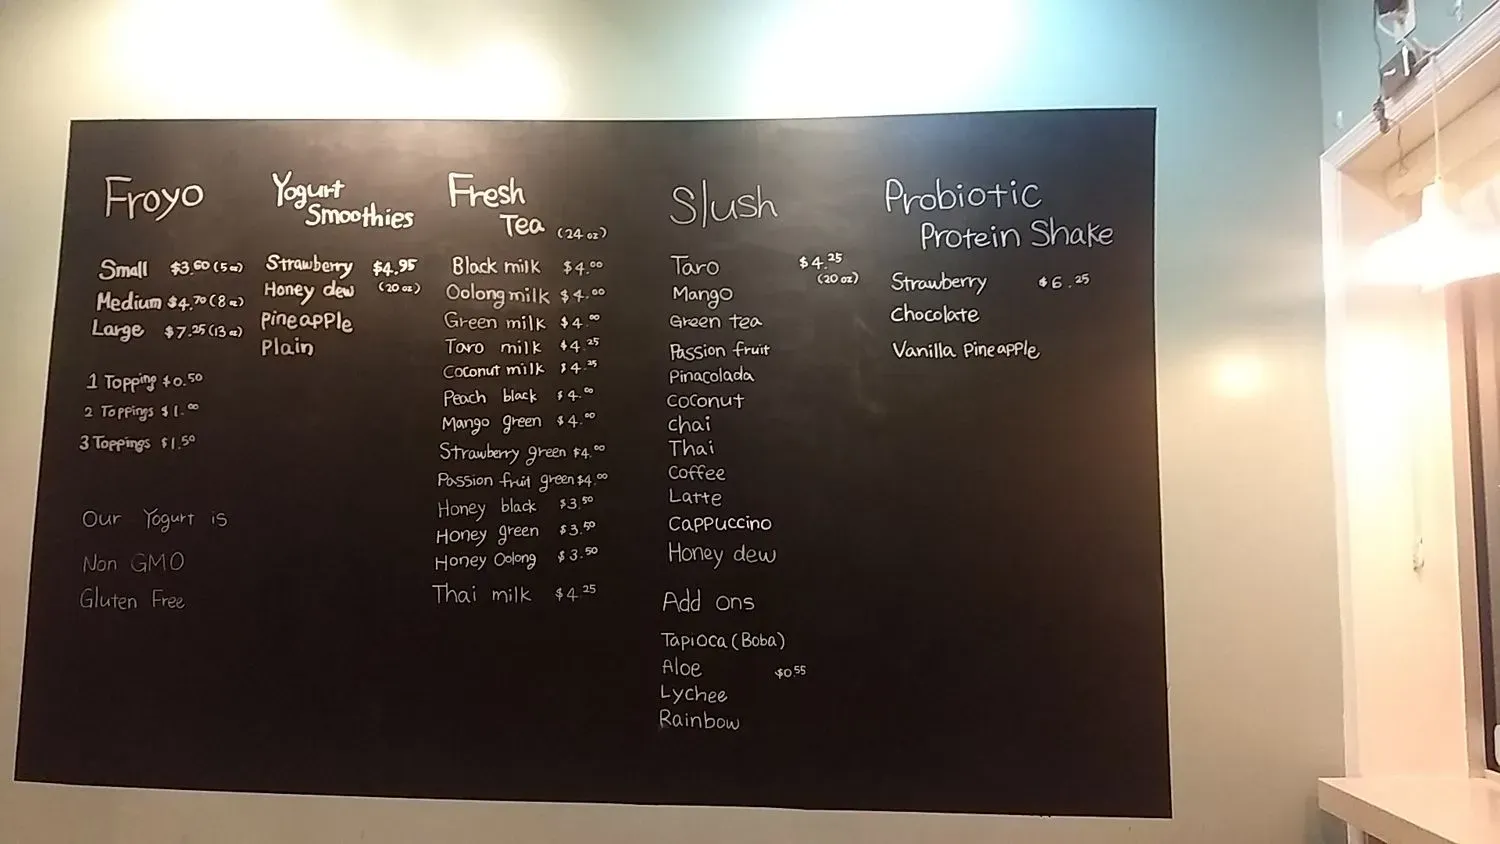 Froyo
Small $3.60 (5 oz)
Medium $4.70 (8 oz)
Large $7.25 (13 oz)
1 Topping $0.50
2 Toppings $1.00
3 Toppings $1.50
Our Yogurt is
Non GMO
Gluten Free
Yogurt
Smoothies
Strawberry $4.95
Honey dew (20 oz)
Pineapple
Plain
Fresh
Tea (24 oz)
Black milk $4.00
Oolong milk $4.00
Green milk $4.00
Taro milk $4.25
Coconut milk $4.25
Peach black $4.00
Mango green $4.00
Strawberry green $4.00
Passion fruit green $4.00
Honey black $3.50
Honey green $3.50
Honey Oolong $3.50
Thai milk $4.25
Slush
Taro $4.25
(20 oz)
Mango
Green tea
Passion fruit
Pinacolada
Coconut
Chai
Thai
Coffee
Latte
Cappuccino
Honey dew
Add ons
Tapioca (Boba)
Aloe $0.55
Lychee
Rainbow
Probiotic
Protein Shake
Strawberry $6.25
Chocolate
Vanilla Pineapple